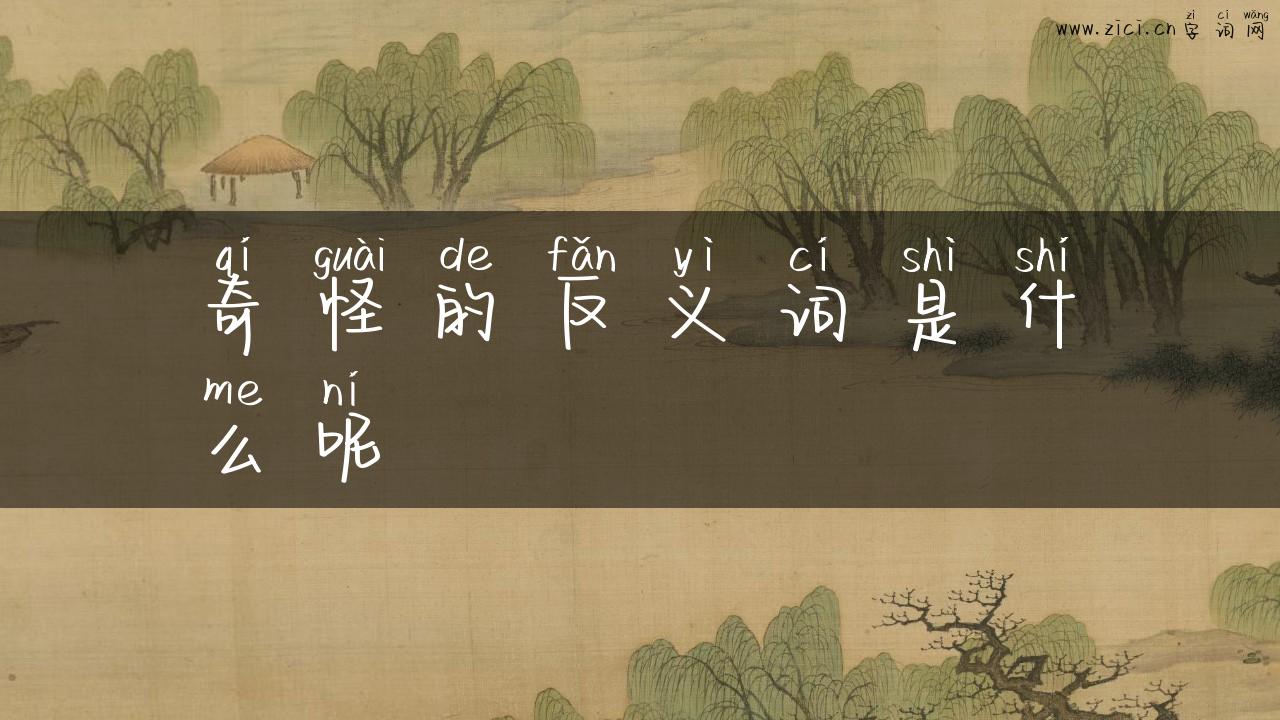 zì cí wǎng
www.zici.cn 字词网
qí guài de fǎn yì cí shì shí
奇怪的反义词是什
me ní
么呢